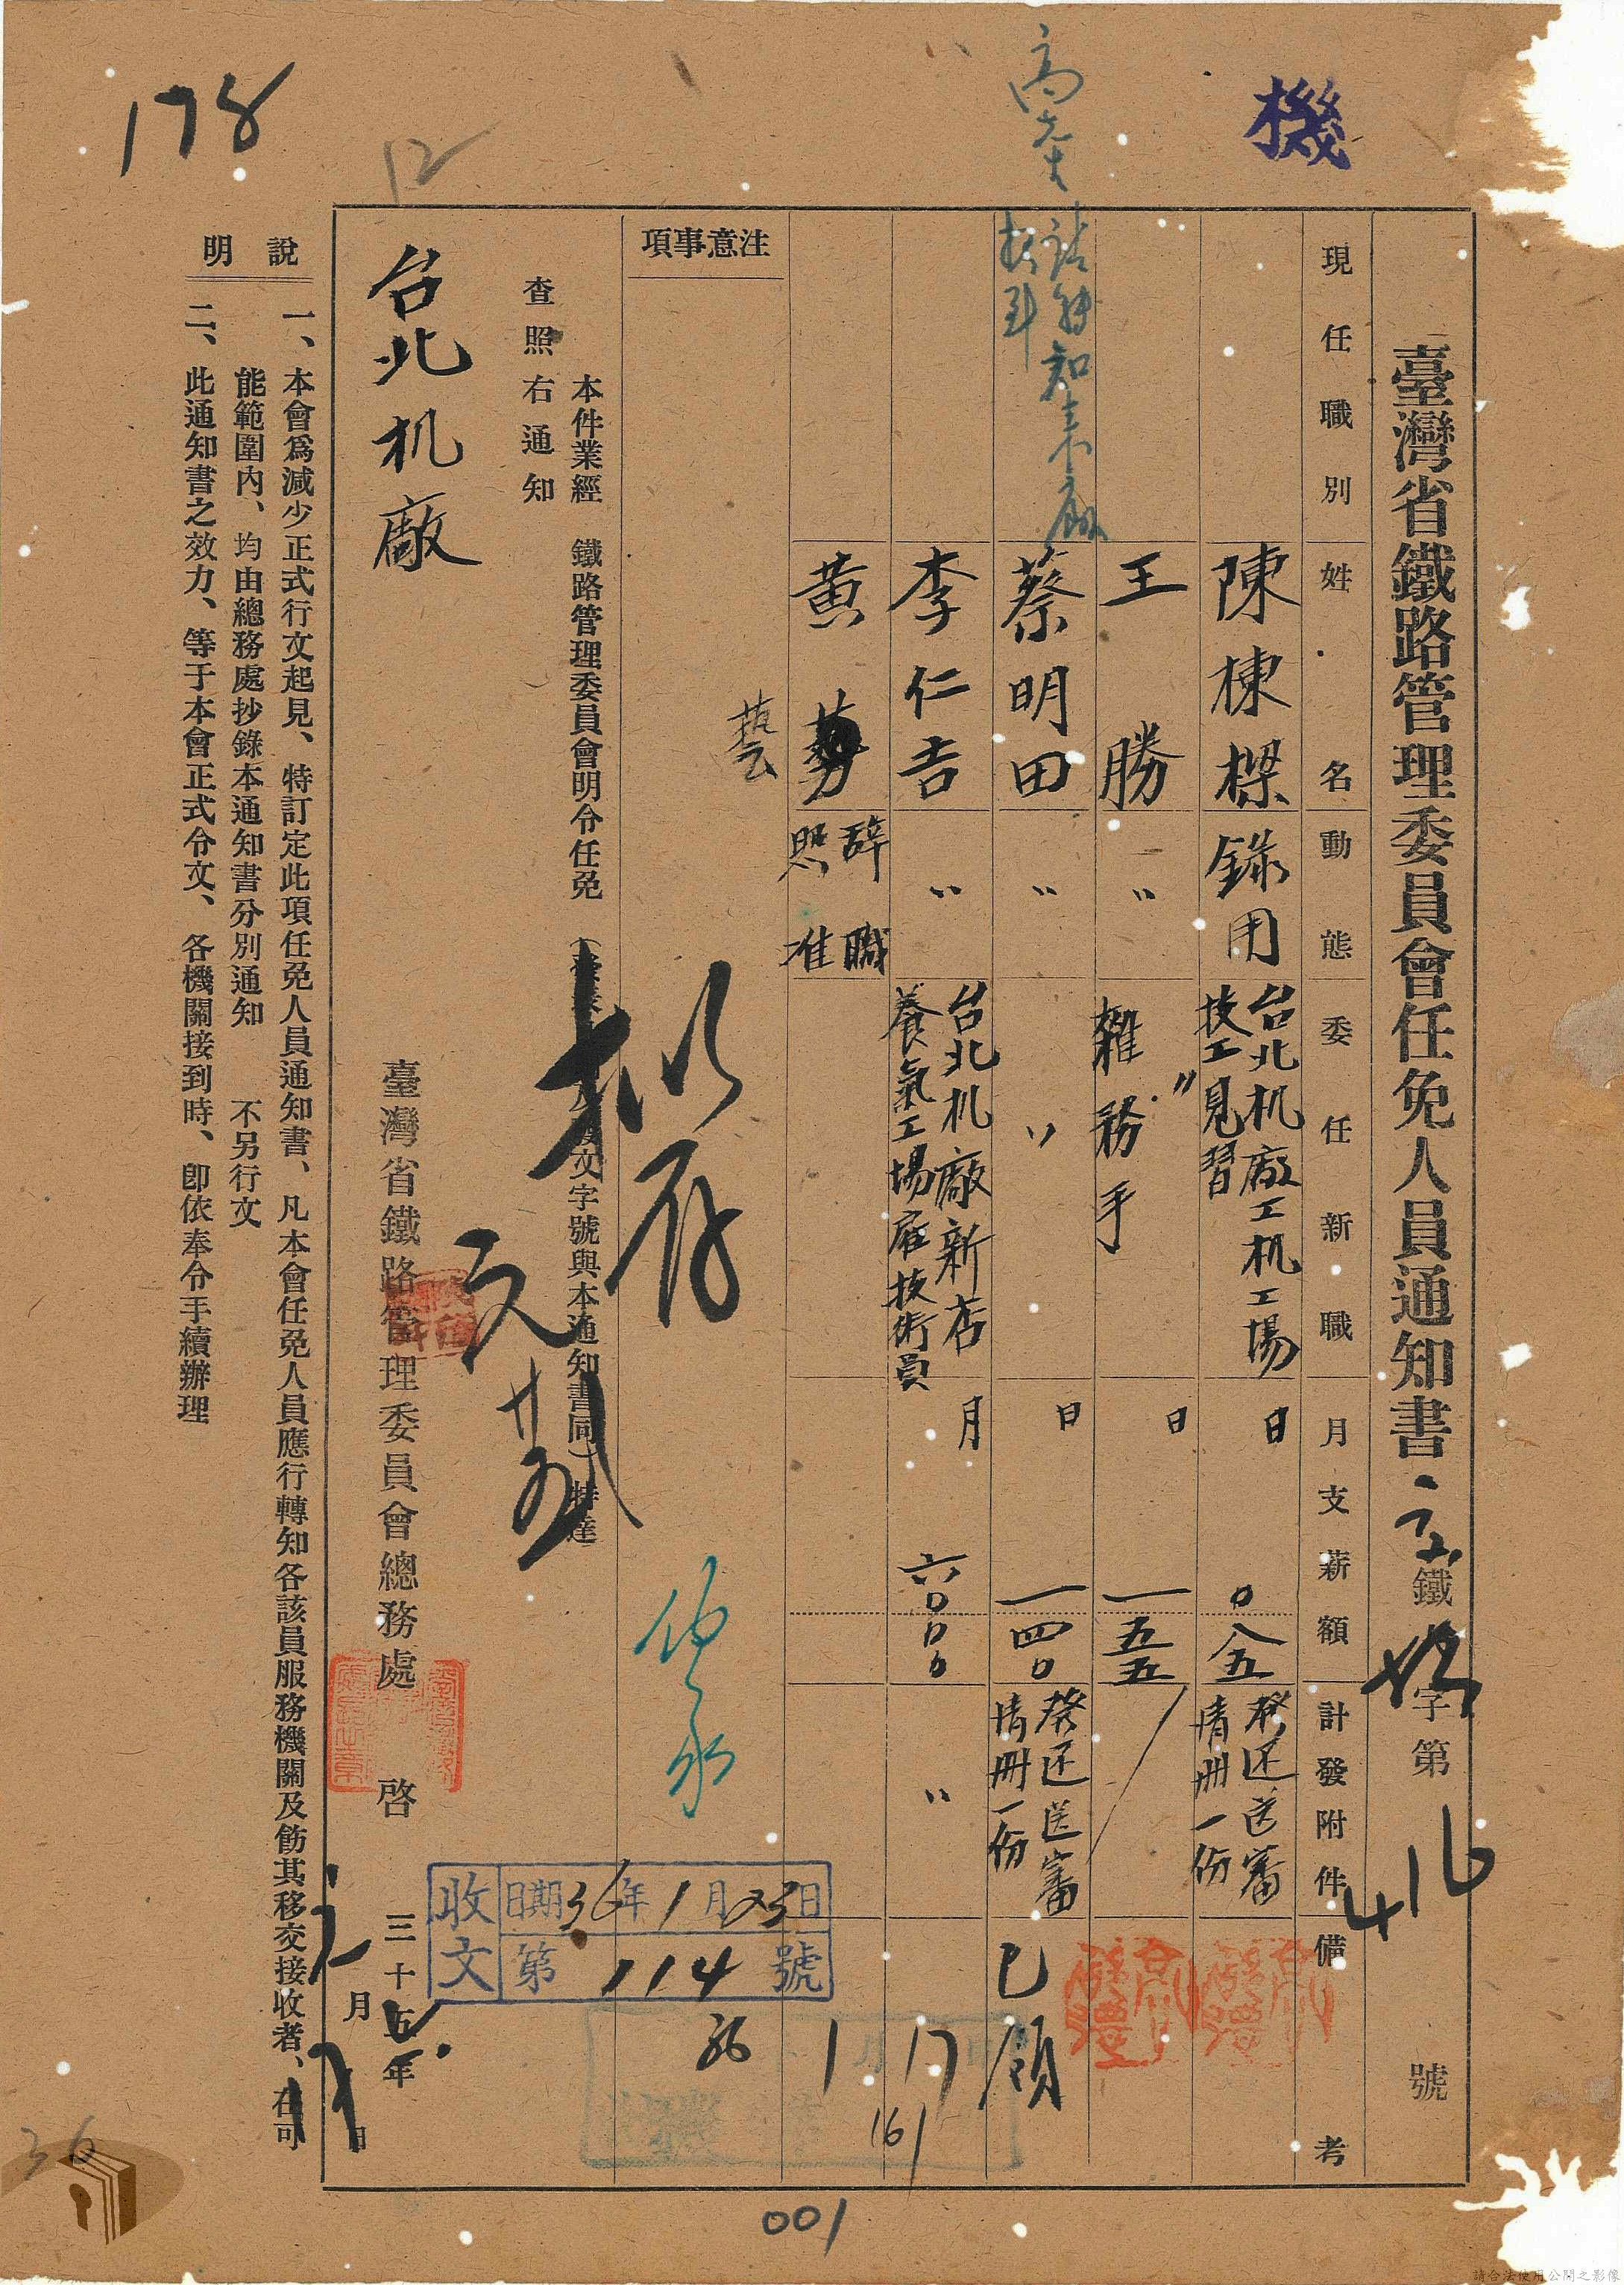 機
高先生
請轉知來廠
報到
178
12
臺灣省鐵路管理委員會任免人員通知書
鐵
字第
416
號
現任職別
姓名
動態
委任新職
月支薪額
計發附件
備考
陳棟樑
錄用
台北机廠工机工場
技工見習
日
0八五
發还送審
清冊一份
王勝
〃
〃
雜務手
日
一五五
蔡明田
〃
〃
日
一四0
發还送審
清冊一份
已領
李仁吉
〃
台北机廠新店
養氣工場雇技術員
月
六000
〃
黃
藝
辞職
照准
注意事項
擬存
本件業經 鐵路管理委員會明令任免
文字號與本通知書同)特達
查照右通知
台北机廠
臺灣省鐵路管理委員會總務處 啓
三十五年
月
日
收文
日期36年1月23日
第114號
36 1 17
161
說明
一、本會爲減少正式行文起見、特訂定此項任免人員通知書、凡本會任免人員應行轉知各該員服務機關及飭其移交接收者、在可
能範圍內、均由總務處抄錄本通知書分別通知 不另行文
二、此通知書之效力、等于本會正式令文、各機關接到時、卽依奉令手續辦理
36
001
請合法使用公開之影像